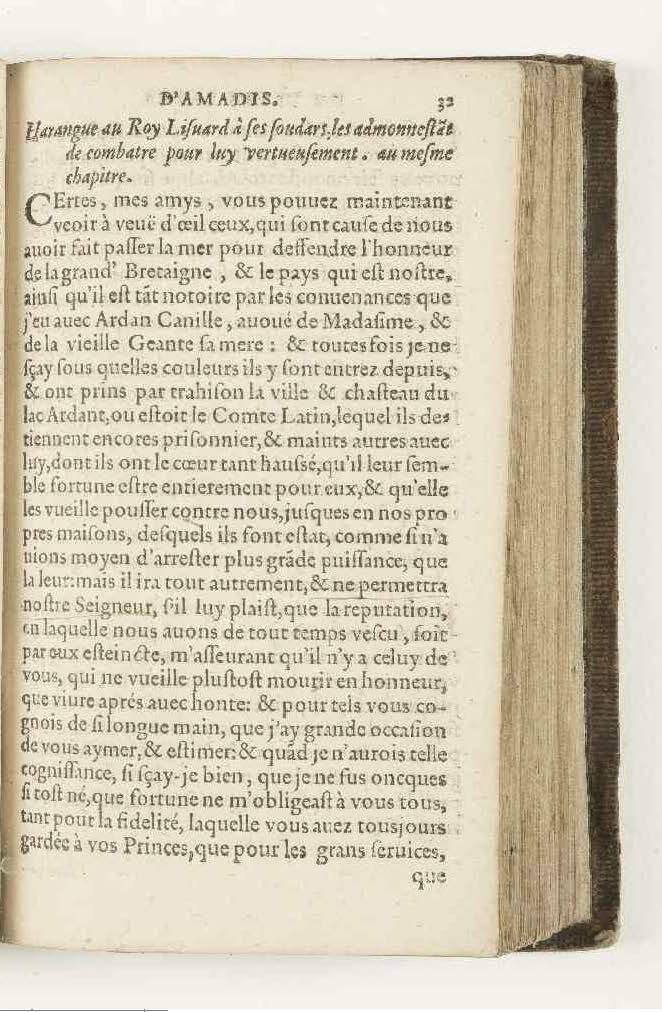 D'AMADIS. 32
Harangue au Roy Liſuard à ſes ſoudars, les admonneſtãt
de combatre pour luy vertueuſement. au meſme
chapitre.
CErtes, mes amys, vous pouuez maintenant
veoir à veuë d'œil ceux, qui ſont cauſe de nous
auoir fait paſſer la mer pour deffendre l'honneur
de la grand' Bretaigne, & le pays qui eſt noſtre,
ainſi qu'il eſt tãt notoire par les conuenances que
j'eu auec Ardan Canille, auoué de Madaſime, &
de la vieille Geante ſa mere: & toutesfois je ne
ſçay ſous quelles couleurs ils y ſont entrez depuis,
& ont prins par trahiſon la ville & chaſteau du
lac Ardant, ou eſtoit le Comte Latin, lequel ils de-
tiennent encores priſonnier, & maints autres auec
luy, dont ils ont le cœur tant hauſſé, qu'il leur ſem-
ble fortune eſtre entierement pour eux, & qu'elle
les vueille pouſſer contre nous, juſques en nos pro
pres maiſons, deſquels ils font eſtat, comme ſi n'a
uions moyen d'arreſter plus grãde puiſſance, que
la leur: mais il ira tout autrement, & ne permettra
noſtre Seigneur, s'il luy plaiſt, que la reputation,
en laquelle nous auons de tout temps veſcu, ſoit
par eux eſteincte, m'aſſeurant qu'il n'y a celuy de
vous, qui ne vueille pluſtoſt mourir en honneur,
que viure aprés auec honte: & pour tels vous co-
gnois de ſi longue main, que j'ay grande occaſion
de vous aymer, & eſtimer: & quãd je n'aurois telle
cogniſſance, ſi ſçay-je bien, que je ne fus oncques
ſi toſt né, que fortune ne m'obligeaſt à vous tous,
tant pour la fidelité, laquelle vous auez tousjours
gardée à vos Princes, que pour les grans ſeruices,
que